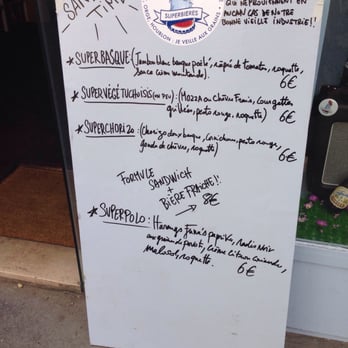 SUPERBIÈRES
ORGE, HOUBLON: JE VEILLE AUX GRAINS
QUI NE PROVIENNENT EN
AUCUN CAS DE NOTRE
BONNE VIEILLE INDUSTRIE!!
* SUPERBASQUE (Jambon blanc basque poêlé, râpée de tomates, roquette,
sauce cisou moutarde).
6€
* SUPERVÉGÉTUCHOISIS (OU PEU): (Mozza ou Chèvre Frais, courgettes
grillées, pesto rouge, roquette) 6€
* SUPERCHORIZO: (Chorizo doux basque, Cornichons, pesto rouge,
de chèvre, roquette) 6€
FORMULE
SANDWICH
+
BIÈRE FRAÎCHE!!
→ 8€
* SUPERPOLO: Hareng Fumés paprika, Radis Noir
pavot, Crème Citron Coriandre,
roquette. 6€